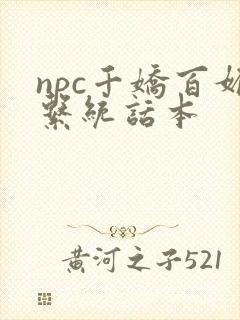 npc千嬌百媚
繫統話本
黄河之子521